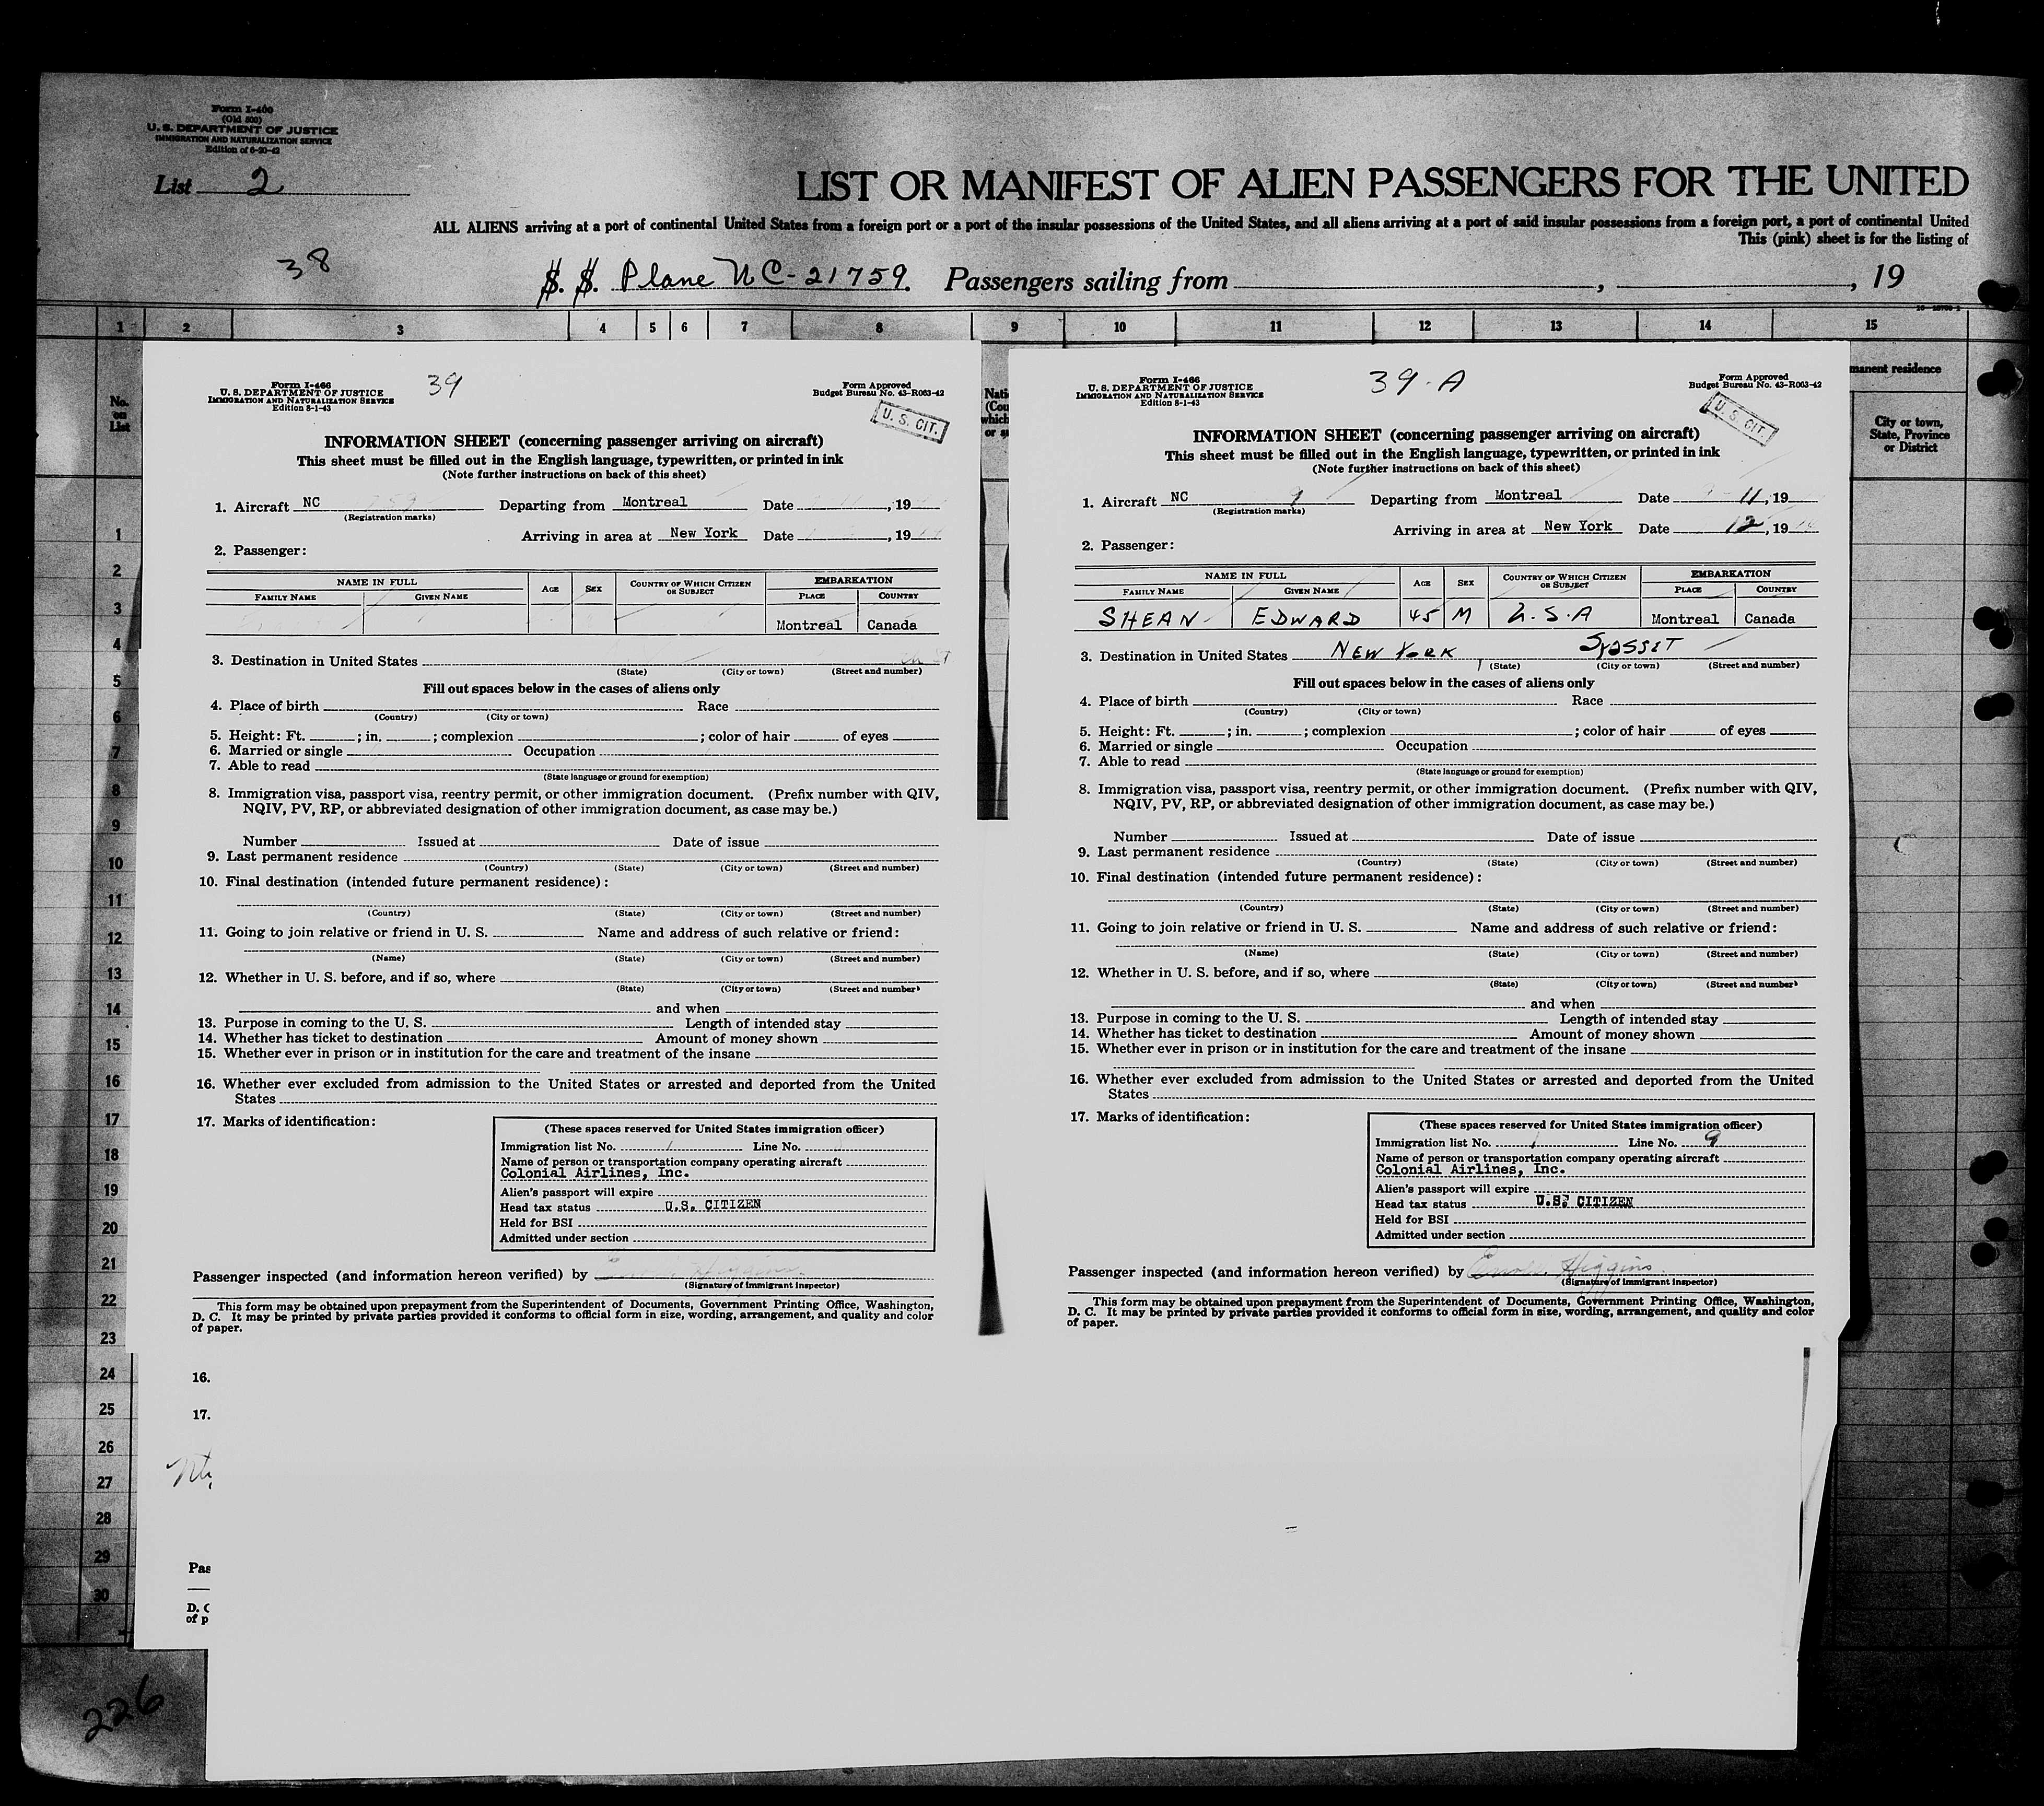 Form I-460
(Old 500)
U. S. DEPARTMENT OF JUSTICE
IMMIGRATION AND NATURALIZATION SERVICE
Edition of 6-20-42
List 2
LIST OR MANIFEST OF ALIEN PASSENGERS FOR THE UNITED
ALL ALIENS arriving at a port of continental United States from a foreign port or a port of the insular possessions of the United States, and all aliens arriving at a port of said insular possessions from a foreign port, a port of continental United
This (pink) sheet is for the listing of
38
S. S. Plane NC-21759. Passengers sailing from , , 19
1 2 3 4 5 6 7 8 9 10 11 12 13 14 15
No. on List
manent residence
City or town, State, Province or District
1
2
3
4
5
6
7
8
9
10
11
12
13
14
15
16
17
18
19
20
21
22
23
24
25
26
27
28
29
30
Form I-466
U. S. DEPARTMENT OF JUSTICE
IMMIGRATION AND NATURALIZATION SERVICE
Edition 8-1-43
39
Form Approved
Budget Bureau No. 43-R063-42
U. S. CIT.
INFORMATION SHEET (concerning passenger arriving on aircraft)
This sheet must be filled out in the English language, typewritten, or printed in ink
(Note further instructions on back of this sheet)
1. Aircraft NC Departing from Montreal Date , 19
(Registration marks)
Arriving in area at New York Date , 19
2. Passenger:
NAME IN FULL AGE SEX COUNTRY OF WHICH CITIZEN OR SUBJECT EMBARKATION
FAMILY NAME GIVEN NAME PLACE COUNTRY
Montreal Canada
3. Destination in United States
(State) (City or town) (Street and number)
Fill out spaces below in the cases of aliens only
4. Place of birth Race
(Country) (City or town)
5. Height: Ft. ; in. ; complexion ; color of hair of eyes
6. Married or single Occupation
7. Able to read
(State language or ground for exemption)
8. Immigration visa, passport visa, reentry permit, or other immigration document. (Prefix number with QIV,
NQIV, PV, RP, or abbreviated designation of other immigration document, as case may be.)
Number Issued at Date of issue
9. Last permanent residence
(Country) (State) (City or town) (Street and number)
10. Final destination (intended future permanent residence):
(Country) (State) (City or town) (Street and number)
11. Going to join relative or friend in U. S. Name and address of such relative or friend:
(Name) (State) (City or town) (Street and number)
12. Whether in U. S. before, and if so, where
(State) (City or town) (Street and number)
and when
13. Purpose in coming to the U. S. Length of intended stay
14. Whether has ticket to destination Amount of money shown
15. Whether ever in prison or in institution for the care and treatment of the insane
16. Whether ever excluded from admission to the United States or arrested and deported from the United
States
17. Marks of identification:
(These spaces reserved for United States immigration officer)
Immigration list No. 1 Line No.
Name of person or transportation company operating aircraft
Colonial Airlines, Inc.
Alien's passport will expire
Head tax status U.S. CITIZEN
Held for BSI
Admitted under section
Passenger inspected (and information hereon verified) by Higgins
(Signature of immigrant inspector)
This form may be obtained upon prepayment from the Superintendent of Documents, Government Printing Office, Washington,
D. C. It may be printed by private parties provided it conforms to official form in size, wording, arrangement, and quality and color
of paper.
Form I-466
U. S. DEPARTMENT OF JUSTICE
IMMIGRATION AND NATURALIZATION SERVICE
Edition 8-1-43
39-A
Form Approved
Budget Bureau No. 43-R063-42
U. S. CIT.
INFORMATION SHEET (concerning passenger arriving on aircraft)
This sheet must be filled out in the English language, typewritten, or printed in ink
(Note further instructions on back of this sheet)
1. Aircraft NC 9 Departing from Montreal Date 11, 19
(Registration marks)
Arriving in area at New York Date 12, 19
2. Passenger:
NAME IN FULL AGE SEX COUNTRY OF WHICH CITIZEN OR SUBJECT EMBARKATION
FAMILY NAME GIVEN NAME PLACE COUNTRY
SHEAN EDWARD 45 M U.S.A Montreal Canada
3. Destination in United States NEW YORK SYOSSET
(State) (City or town) (Street and number)
Fill out spaces below in the cases of aliens only
4. Place of birth Race
(Country) (City or town)
5. Height: Ft. ; in. ; complexion ; color of hair of eyes
6. Married or single Occupation
7. Able to read
(State language or ground for exemption)
8. Immigration visa, passport visa, reentry permit, or other immigration document. (Prefix number with QIV,
NQIV, PV, RP, or abbreviated designation of other immigration document, as case may be.)
Number Issued at Date of issue
9. Last permanent residence
(Country) (State) (City or town) (Street and number)
10. Final destination (intended future permanent residence):
(Country) (State) (City or town) (Street and number)
11. Going to join relative or friend in U. S. Name and address of such relative or friend:
(Name) (State) (City or town) (Street and number)
12. Whether in U. S. before, and if so, where
(State) (City or town) (Street and number)
and when
13. Purpose in coming to the U. S. Length of intended stay
14. Whether has ticket to destination Amount of money shown
15. Whether ever in prison or in institution for the care and treatment of the insane
16. Whether ever excluded from admission to the United States or arrested and deported from the United
States
17. Marks of identification:
(These spaces reserved for United States immigration officer)
Immigration list No. 1 Line No. 9
Name of person or transportation company operating aircraft
Colonial Airlines, Inc.
Alien's passport will expire
Head tax status U.S. CITIZEN
Held for BSI
Admitted under section
Passenger inspected (and information hereon verified) by Higgins
(Signature of immigrant inspector)
This form may be obtained upon prepayment from the Superintendent of Documents, Government Printing Office, Washington,
D. C. It may be printed by private parties provided it conforms to official form in size, wording, arrangement, and quality and color
of paper.
16.
17.
Pas
D. C
of p
226